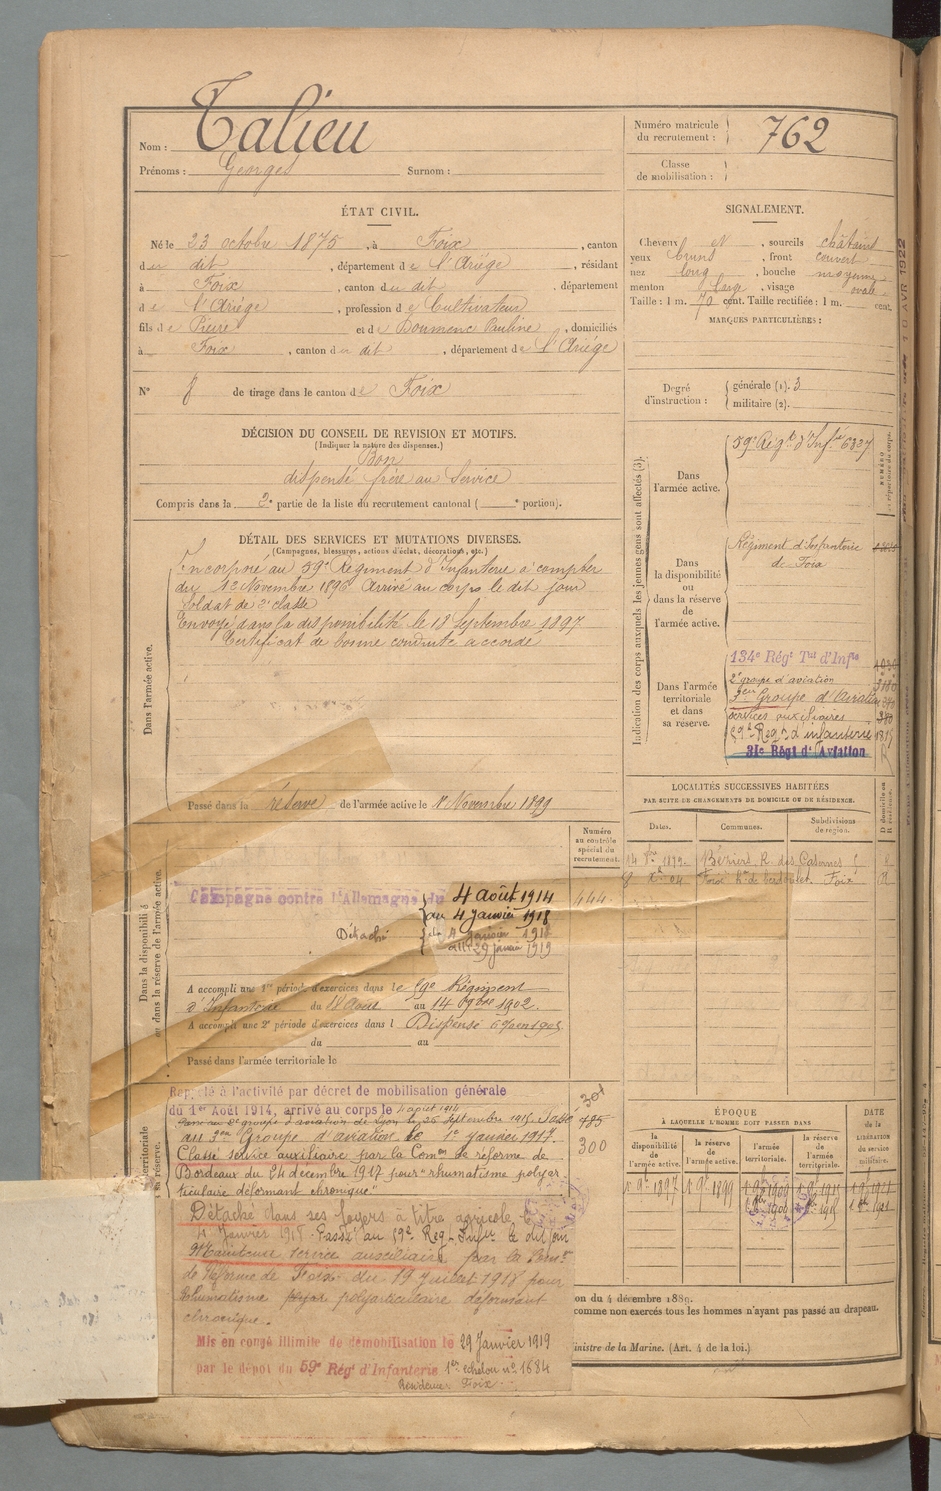 Nom : Talieu
Prénoms : Georges Surnom :
Numéro matricule du recrutement : 762
Classe de mobilisation :
ÉTAT CIVIL.
Né le 23 octobre 1875, à Foix, canton
du dit, département de l'Ariège, résidant
à Foix, canton du dit, département
de l'Ariège, profession de Cultivateur
fils de Pierre et de Doumenc Pauline, domiciliés
à Foix, canton du dit, département de l'Ariège
N° 8 de tirage dans le canton de Foix
SIGNALEMENT.
Cheveux et, sourcils châtains
yeux bruns, front couvert
nez long, bouche moyenne
menton large, visage ovale
Taille : 1 m. 70 cent. Taille rectifiée : 1 m. cent.
MARQUES PARTICULIÈRES :
Degré d'instruction : générale (1). 3
militaire (2).
DÉCISION DU CONSEIL DE REVISION ET MOTIFS.
(Indiquer la nature des dispenses.)
Bon
dispensé frère au Service
Compris dans la 2e partie de la liste du recrutement cantonal ( e portion).
DÉTAIL DES SERVICES ET MUTATIONS DIVERSES.
(Campagnes, blessures, actions d'éclat, décorations, etc.)
Dans l'armée active.
Incorporé au 59e Régiment d'Infanterie à compter
du 12 Novembre 1896. Arrivé au corps le dit jour
Soldat de 2e classe
Envoyé dans la disponibilité le 18 Septembre 1897
Certificat de bonne conduite accordé
Passé dans la réserve de l'armée active le 1er Novembre 1899
Indication des corps auxquels les jeunes gens sont affectés (3).
Dans l'armée active.
59e Régt d'Infie 6337
Dans la disponibilité ou dans la réserve de l'armée active.
Régiment d'Infanterie
de Foix
Dans l'armée territoriale et dans sa réserve.
134e Régt Tal d'Infie
2e groupe d'aviation
3em Groupe d'Aviation
services auxiliaires
59e Regt d'infanterie
31e Régt d'Aviation
LOCALITÉS SUCCESSIVES HABITÉES
PAR SUITE DE CHANGEMENTS DE DOMICILE OU DE RÉSIDENCE.
Dates. Communes. Subdivisions de région.
D domicile ou R résidence.
Béziers R. des Casernes
Foix Foix
Numéro au contrôle spécial du recrutement.
444
Dans la disponibilité ou dans la réserve de l'armée active.
Campagne contre l'Allemagne du 4 août 1914
au 4 janvier 1918
Détaché du 4 janvier 1918
au 29 janvier 1919
A accompli une 1re période d'exercices dans le 59e Régiment
d'Infanterie du 18 Août au 14 7bre 1902.
A accompli une 2e période d'exercices dans l Dispensé
du au
Passé dans l'armée territoriale le
Rappelé à l'activité par décret de mobilisation générale
du 1er Août 1914, arrivé au corps le 4 août 1914
Passé au 2e groupe d'aviation de Lyon le 26 Septembre 1915. Passé
au 3em Groupe d'aviation le 1er janvier 1917.
795
300
Classé service auxiliaire par la Comon de réforme de
Bordeaux du 24 décembre 1917 pour "rhumatisme polyar
ticulaire déformant chronique"
Détaché dans ses foyers à titre agricole le
4 Janvier 1918. Passé au 59e Reg. Infie le dit jour
Maintenu service auxiliaire par la Comon
de Réforme de Foix du 19 juillet 1918 pour
Rhumatisme polyarticulaire déformant
chronique.
Mis en congé illimité de démobilisation le 29 Janvier 1919
par le dépôt du 59e Régt d'Infanterie 1er echelon no 1684
Residence Foix
ÉPOQUE
À LAQUELLE L'HOMME DOIT PASSER DANS
la disponibilité de l'armée active. la réserve de l'armée active. l'armée territoriale. la réserve de l'armée territoriale.
DATE de la LIBÉRATION du service militaire.
1 9bre 1897 1 9bre 1899
on du 4 décembre 1889.
comme non exercés tous les hommes n'ayant pas passé au drapeau.
inistre de la Marine. (Art. 4 de la loi.)